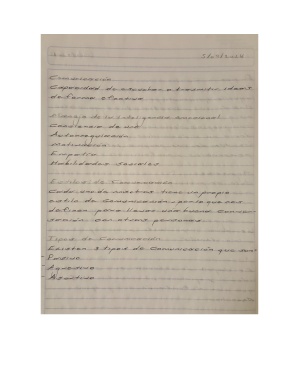 Comunicación
Capacidad de escuchar o transmitir ideas
de forma efectiva
Manejo de inteligencia emocional
Conciencia de
Autorregulación
Motivación
Empatía
Habilidades sociales
Estilos de Comunicación
Cada uno de nosotros tiene un propio
estilo de Comunicación, por lo que nos
definen, para llevar una buena conver-
sación con otras personas
Tipos de Comunicación
Existen 3 tipos de Comunicación que son
- Pasivo
- Agresivo
- Asertivo